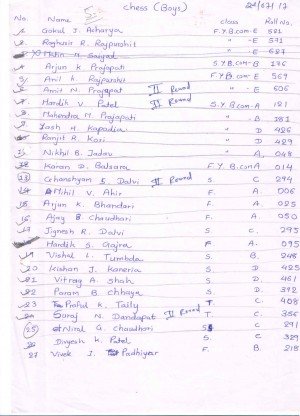 chess (Boys) 24/07/17
No. Name class Roll No.
1 Gokul J. Acharya F.Y.B.com-E 581
2 Raghuvir R. Rajpurohit " -E 591
Matin M. Saiyad " -E 627
4 Arjun K Prajapati S.Y.B.com-B 176
5 Anil K. Rajpurohit F.Y.B.com-E 569
6 Amit N. Prajapat II Round " -E 606
7 Hardik V. Patel II Round S.Y.B.com-A 121
8 Mahendra M. Prajapati " B 181
9 Jash H. Kapadia " D 426
10 Ranjit R. Kori " D 429
11 Nikhil B. Jadav " A, 048
12 Karan D. Balsara F.Y.B.comA 014
13 Ghanshyam S. Dalvi II Round S. C 294
14 Mihil V. Ahir F. A 006
15 Arjun K. Bhandari F. A. 025
16 Ajay B. Chaudhari F. A. 050
17 Jignesh R. Dalvi S. C. 295
Hardik S. Gajra F. A. 095
19 Vishal L. Tumbda S. B. 248
20 Kishan J. Kaneria S. D 425
21 Vitrag A. shah S. D. 461
22 Param B. Chhaya S. D. 392
23 Praful K. Taily T. C. 408
24 Suraj N. Dandapat II Round T. C 356
25 Niral G. chaudhari S C 291
26 Divyesh K. Patel S. C 329
27 Vivek J. Padhiyar F. B. 218